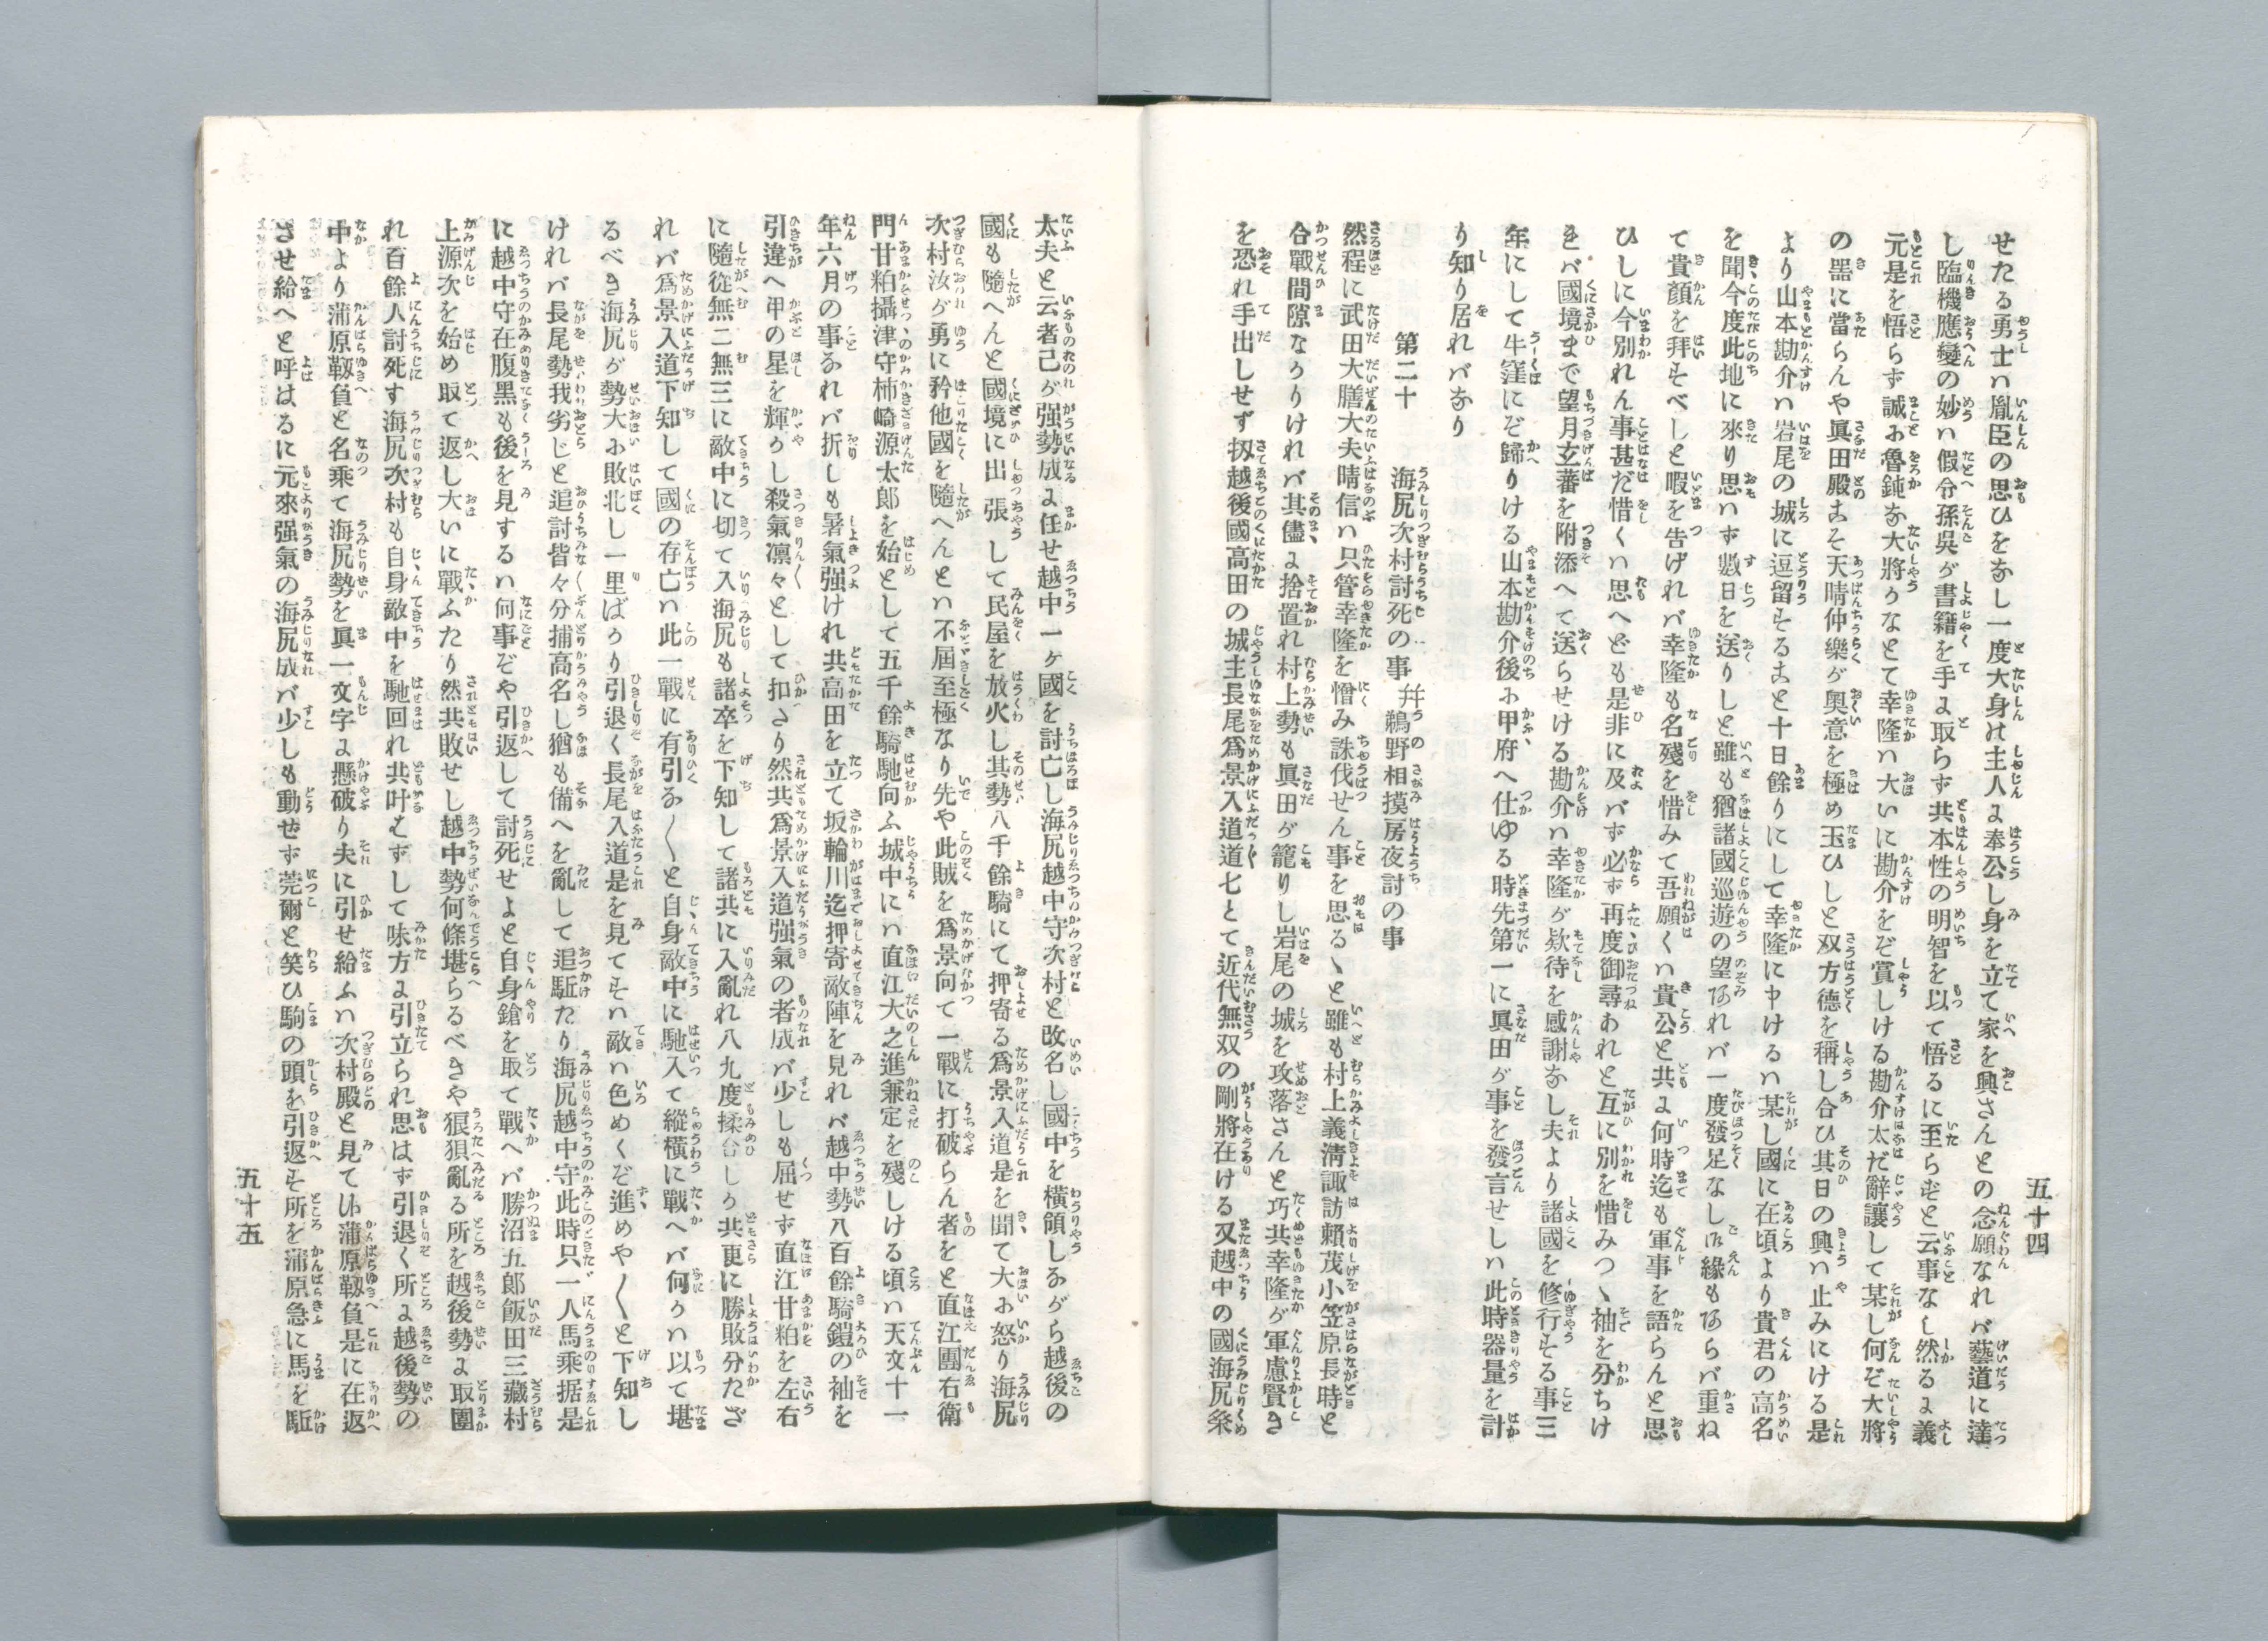 五十四
せたる勇士ハ胤臣の思ひをなし一度大身の主人に奉公し身を立て家を興さんとの念願なれバ藝道に達
し臨機應變の妙ハ假令孫呉が書籍を手に取らず共本性の明智を以て悟るに至らむと云事なし然るに義
元是を悟らず誠に魯鈍な大將かなとて幸隆ハ大いに勘介をぞ賞しける勘介太だ辭讓して某し何ぞ大將
の噐に當らんや眞田殿こそ天晴仲樂が奥意を極め玉ひしと双方德を稱し合ひ其日の興ハ止みにける是
より山本勘介ハ岩尾の城に逗留すること十日餘りにして幸隆に申けるハ某し國に在頃より貴君の高名
を聞今度此地に來り思ハず數日を送りしと雖も猶諸國巡遊の望あれバ一度發足なし御緣もあらバ重ね
て貴顏を拜すべしと暇を告げれバ幸隆も名殘を惜みて吾願くハ貴公と共に何時迄も軍事を語らんと思
ひしに今別れん事甚だ惜くハ思へども是非に及バず必ず再度御尋あれと互に別を惜みつゝ袖を分ちけ
きバ國境まで望月玄蕃を附添へて送らせける勘介ハ幸隆が欵待を感謝なし夫より諸國を修行する事三
年にして牛窪にぞ歸りける山本勘介後に甲府へ仕ゆる時先第一に眞田が事を發言せしハ此時器量を計
り知り居れバなり
第二十　海尻次村討死の事　并　鵜野相摸房夜討の事
然程に武田大膳大夫晴信ハ只管幸隆を憎み誅伐せん事を思るゝと雖も村上義淸諏訪賴茂小笠原長時と
合戰間隙なかりけれバ其儘に捨置れ村上勢も眞田が籠りし岩尾の城を攻落さんと巧共幸隆が軍慮賢き
を恐れ手出しせず扨越後國高田の城主長尾爲景入道道七とて近代無双の剛將在ける又越中の國海尻粂
太夫と云者己が强勢成に任せ越中一ヶ國を討亡し海尻越中守次村と改名し國中を橫領しながら越後の
國も隨へんと國境に出張して民屋を放火し其勢八千餘騎にて押寄る爲景入道是を聞て大に怒り海尻
次村汝が勇に矜他國を隨へんとハ不屆至極なり先や此賊を爲景向て一戰に打破らん者をと直江團右衛
門甘粕攝津守柿崎源太郎を始として五千餘騎馳向ふ城中にハ直江大之進兼定を殘しける頃ハ天文十一
年六月の事なれバ折しも暑氣强けれ共高田を立て坂輪川迄押寄敵陣を見れバ越中勢八百餘騎鎧の袖を
引違へ甲の星を輝かし殺氣凛々として扣さり然共爲景入道强氣の者成バ少しも屈せず直江甘粕を左右
に隨從無二無三に敵中に切て入海尻も諸卒を下知して諸共に入亂れ八九度揉合しか共更に勝敗分たざ
れバ爲景入道下知して國の存亡ハ此一戰に有引な〱と自身敵中に馳入て縱橫に戰へバ何かハ以て堪
るべき海尻が勢大に敗北し一里ばかり引退く長尾入道是を見てすハ敵ハ色めくぞ進めや〱と下知し
けれバ長尾勢我劣じと追討皆々分捕高名し猶も備へを亂して追駈たり海尻越中守此時只一人馬乘据是
に越中守在腹黑も後を見するハ何事ぞや引返して討死せよと自身鎗を取て戰へバ勝沼五郎飯田三藏村
上源次を始め取て返し大いに戰ふたり然共敗せし越中勢何條堪らるべきや狠狽亂る所を越後勢に取圍
れ百餘人討死す海尻次村も自身敵中を馳回れ共叶むずして味方に引立られ思はず引退く所に越後勢の
中より蒲原靱負と名乘て海尻勢を眞一文字に懸破り夫に引せ給ふハ次村殿と見て候蒲原靱負是に在返
させ給へと呼はるに元來强氣の海尻成バ少しも動せず莞爾と笑ひ駒の頭を引返す所を蒲原急に馬を駈
五十五